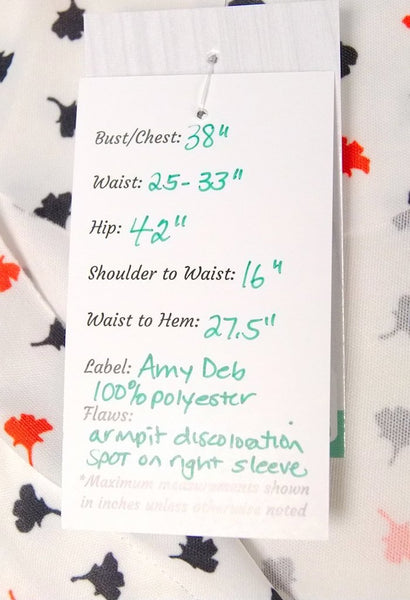 Bust/Chest: 38"
Waist: 25-33"
Hip: 42"
Shoulder to Waist: 16"
Waist to Hem: 27.5"
Label: Amy Deb
100% polyester
Flaws:
armpit discoloration
spot on right sleeve
*Maximum measurements shown
in inches unless otherwise noted